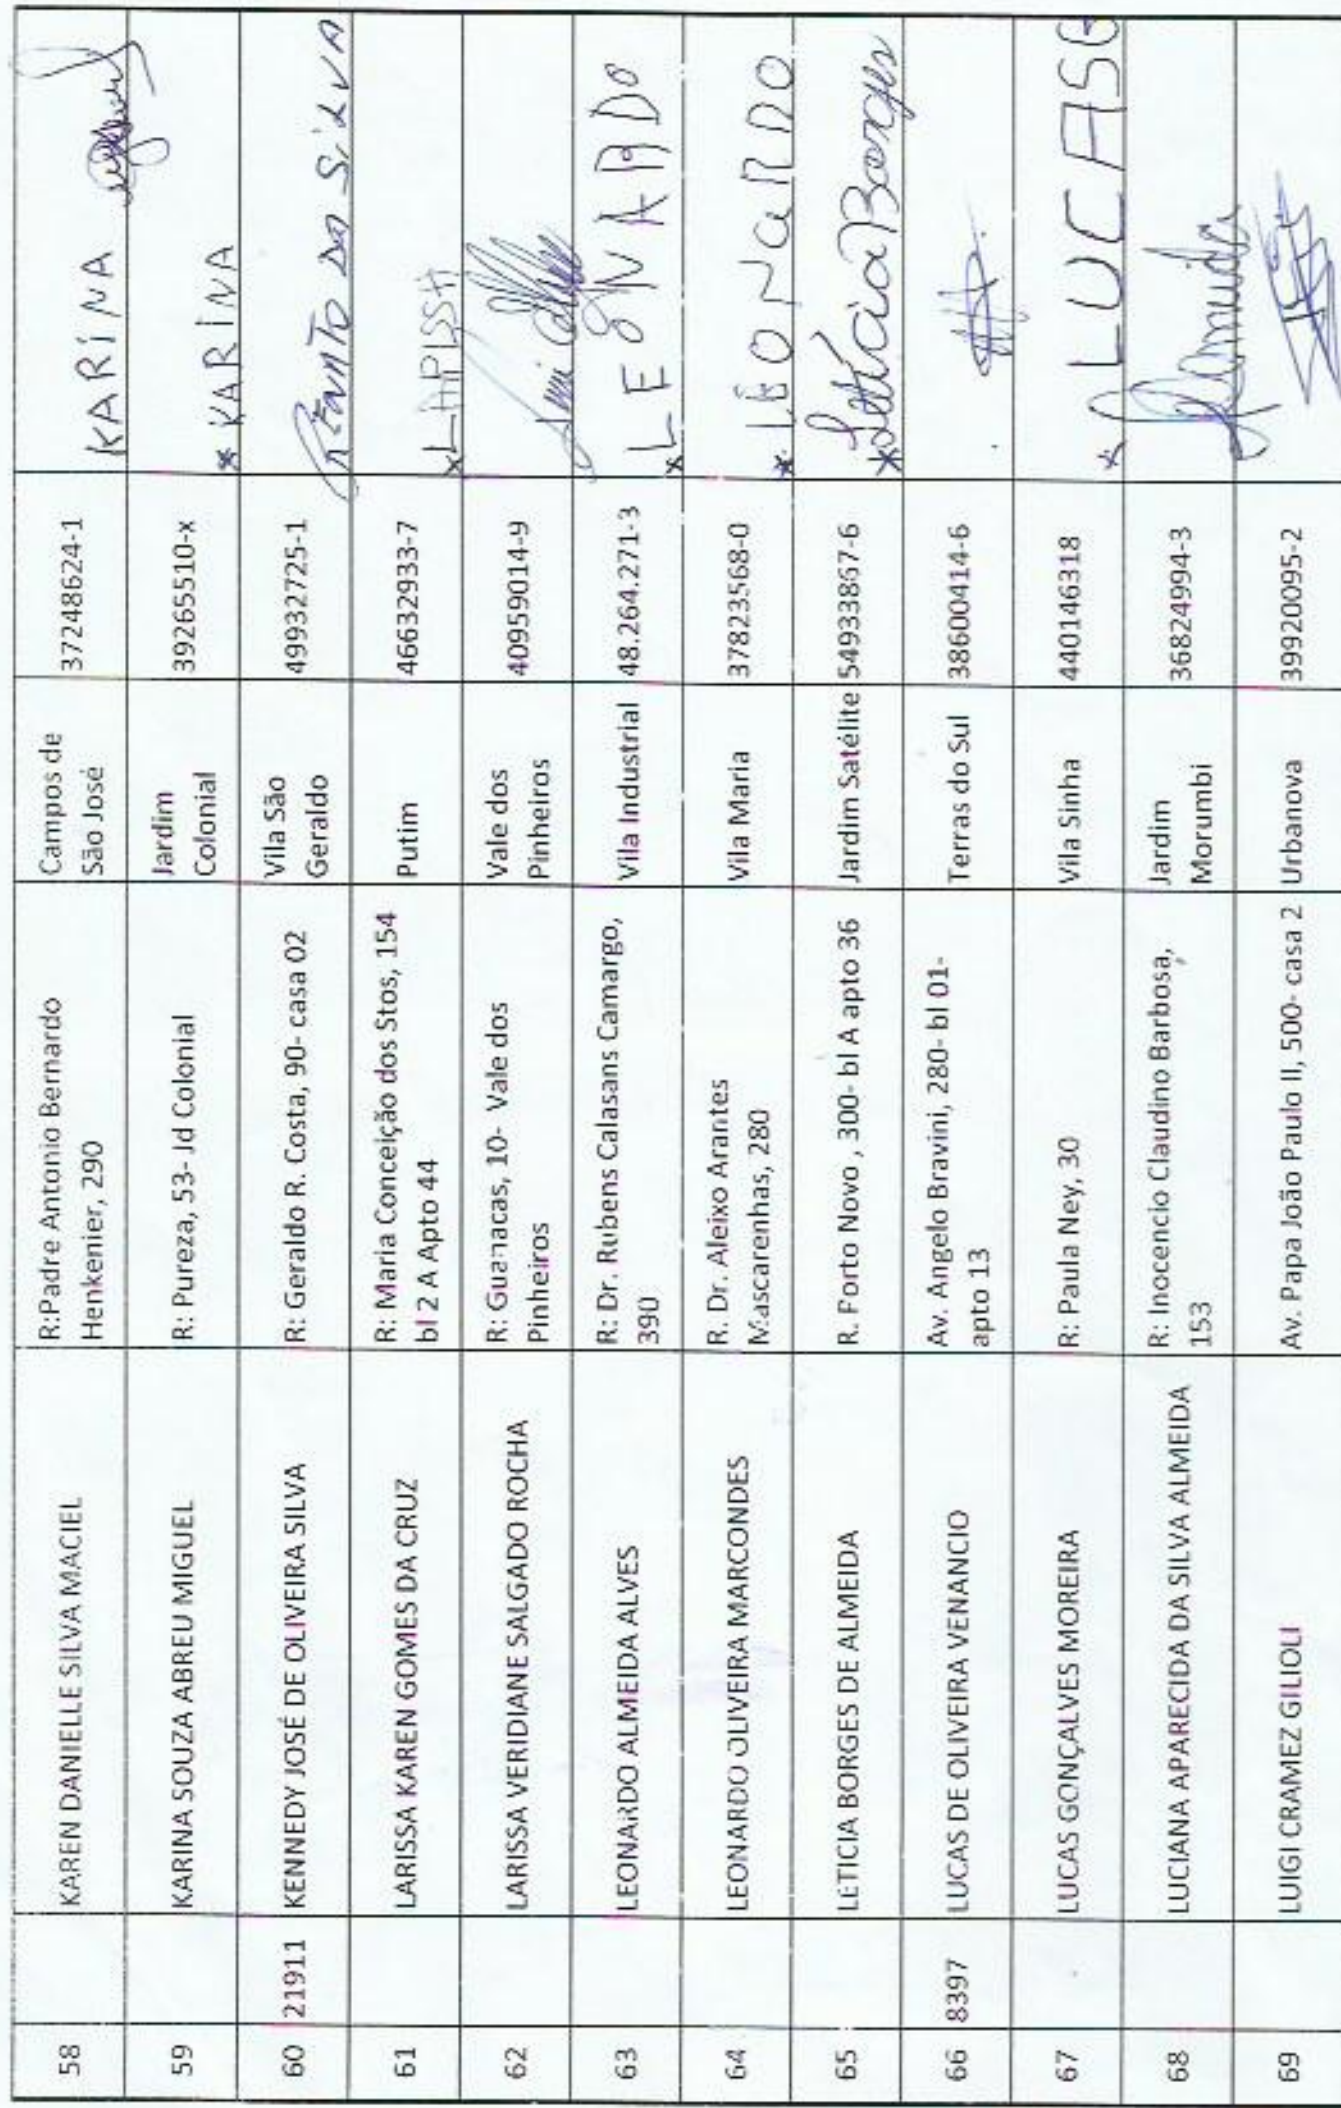 58 KAREN DANIELLE SILVA MACIEL R:Padre Antonio Bernardo Campos de 37248624-1 KARINA
Henkenier, 290 São José
59 KARINA SOUZA ABREU MIGUEL R: Pureza, 53- Jd Colonial Jardim 39265510-x * KARINA
Colonial
60 21911 KENNEDY JOSÉ DE OLIVEIRA SILVA R: Geraldo R. Costa, 90- casa 02 Vila São 49932725-1 da SiLVA
Geraldo
61 LARISSA KAREN GOMES DA CRUZ R: Maria Conceição dos Stos, 154 Putim 46632933-7
bl 2 A Apto 44
62 LARISSA VERIDIANE SALGADO ROCHA R: Guanacas, 10- Vale dos Vale dos 40959014-9
Pinheiros Pinheiros
63 LEONARDO ALMEIDA ALVES R: Dr. Rubens Calasans Camargo, Vila Industrial 48.264.271-3
390
64 LEONARDO OLIVEIRA MARCONDES R. Dr. Aleixo Arantes Vila Maria 37823568-0
Mascarenhas, 280
65 LETICIA BORGES DE ALMEIDA R. Porto Novo , 300- bl A apto 36 Jardim Satélite 54933867-6 * Letícia Borges
66 8397 LUCAS DE OLIVEIRA VENANCIO Av. Angelo Bravini, 280- bl 01- Terras do Sul 38600414-6
apto 13
67 LUCAS GONÇALVES MOREIRA R: Paula Ney, 30 Vila Sinha 440146318 * LUCAS G
68 LUCIANA APARECIDA DA SILVA ALMEIDA R: Inocencio Claudino Barbosa, Jardim 36824994-3
153 Morumbi
69 LUIGI CRAMEZ GILIOLI Av. Papa João Paulo II, 500- casa 2 Urbanova 39920095-2